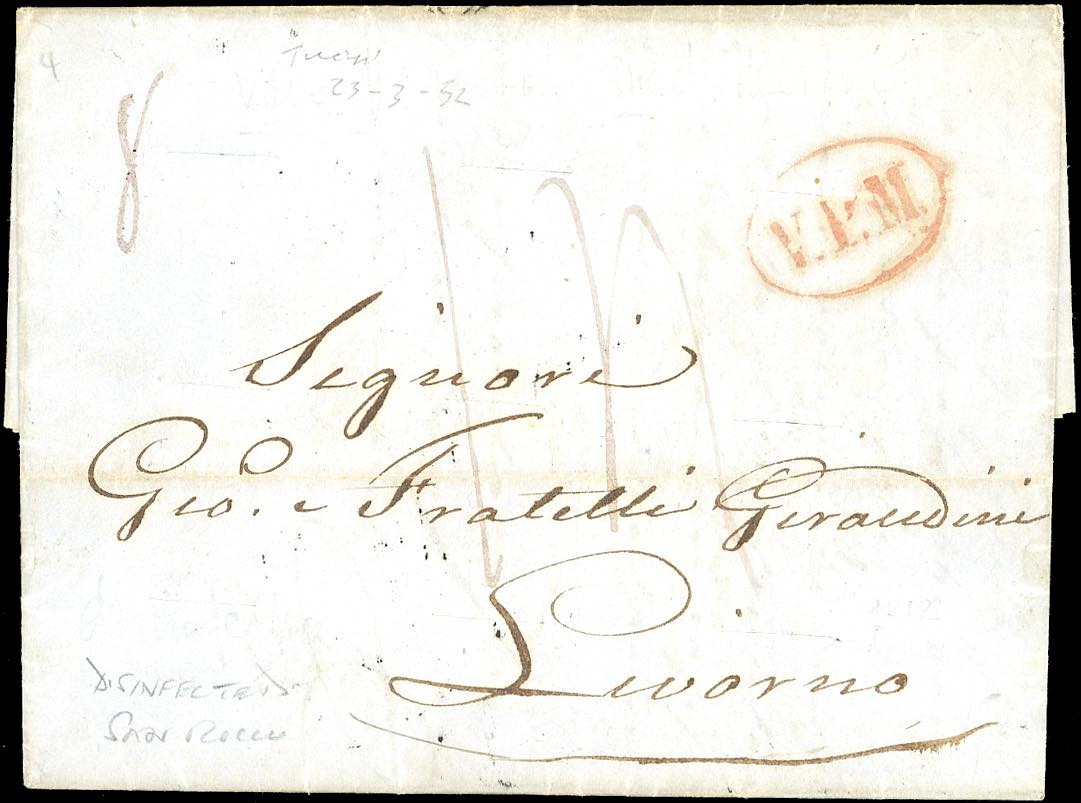 4
Tunis
23-3-52
8
V.P.M.
Signori
Gio. e Fratelli Giraudini
Livorno
DISINFECTED
San Rocco